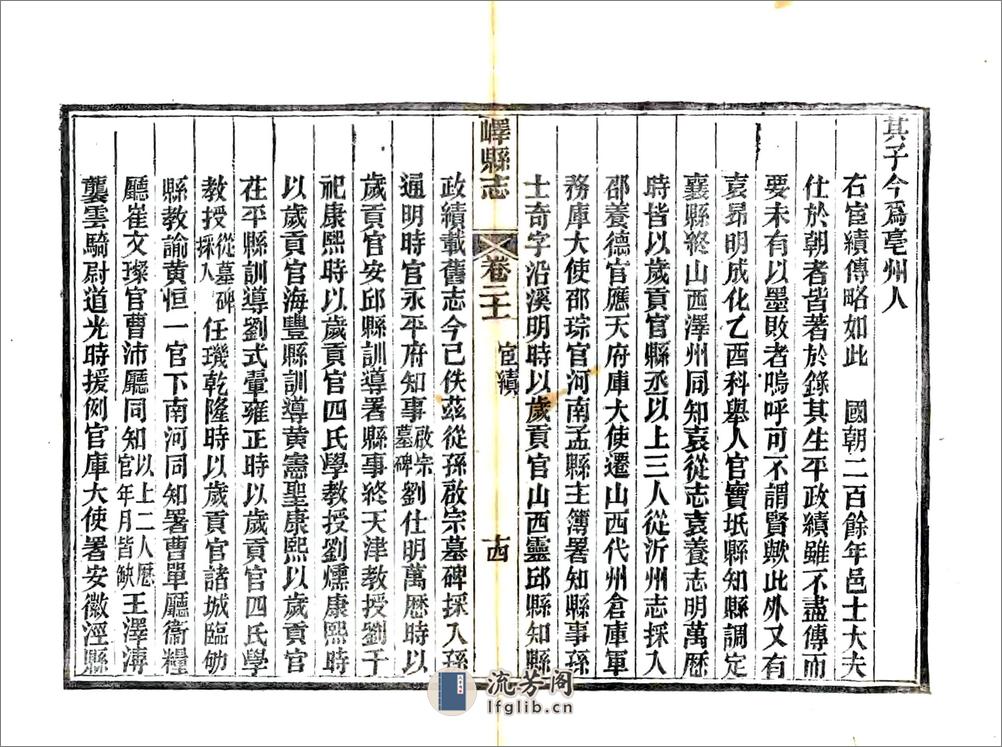 其子今爲亳州人
右宦績傳略如此　國朝二百餘年邑士大夫
仕於朝者皆著於錄其生平政績雖不盡傳而
要未有以墨敗者嗚呼可不謂賢歟此外又有
袁昂明成化乙酉科舉人官寶坻縣知縣調定
襄縣終山西澤州同知袁從志袁養志明萬歷
時皆以歲貢官縣丞以上三人從沂州志採入
邵養德官應天府庫大使遷山西代州倉庫軍
務庫大使邵琮官河南孟縣主簿署知縣事孫
士奇字沿溪明時以歲貢官山西靈邱縣知縣
嶧縣志　卷二十　宦績　十四
政績載舊志今已佚茲從孫啟宗墓碑採入孫
通明時官永平府知事啟宗墓碑劉仕明萬歷時以
歲貢官安邱縣訓導署縣事終天津教授劉于
祀康熙時以歲貢官四氏學教授劉燸康熙時
以歲貢官海豐縣訓導黃憲聖康熙以歲貢官
茌平縣訓導劉式鞏雍正時以歲貢官四氏學
教授從墓碑採入任璣乾隆時以歲貢官諸城臨朐
縣教諭黃恒一官下南河同知署曹單廳衞糧
廳崔文璨官曹沛廳同知以上二人歷官年月皆缺王澤溥
襲雲騎尉道光時援例官庫大使署安徽涇縣
流芳阁
lfglib.cn